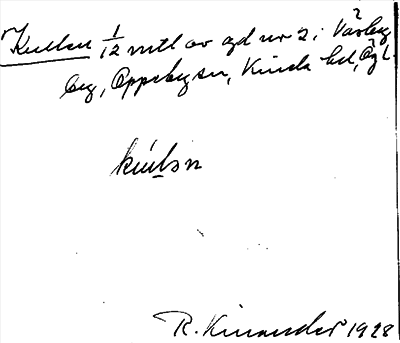 Kullen 1/12 mtl av gd nr 2 i Vårby
by, Oppeby sn, Kinda hd, Ögl.
kúlən
R. Kinander 1928